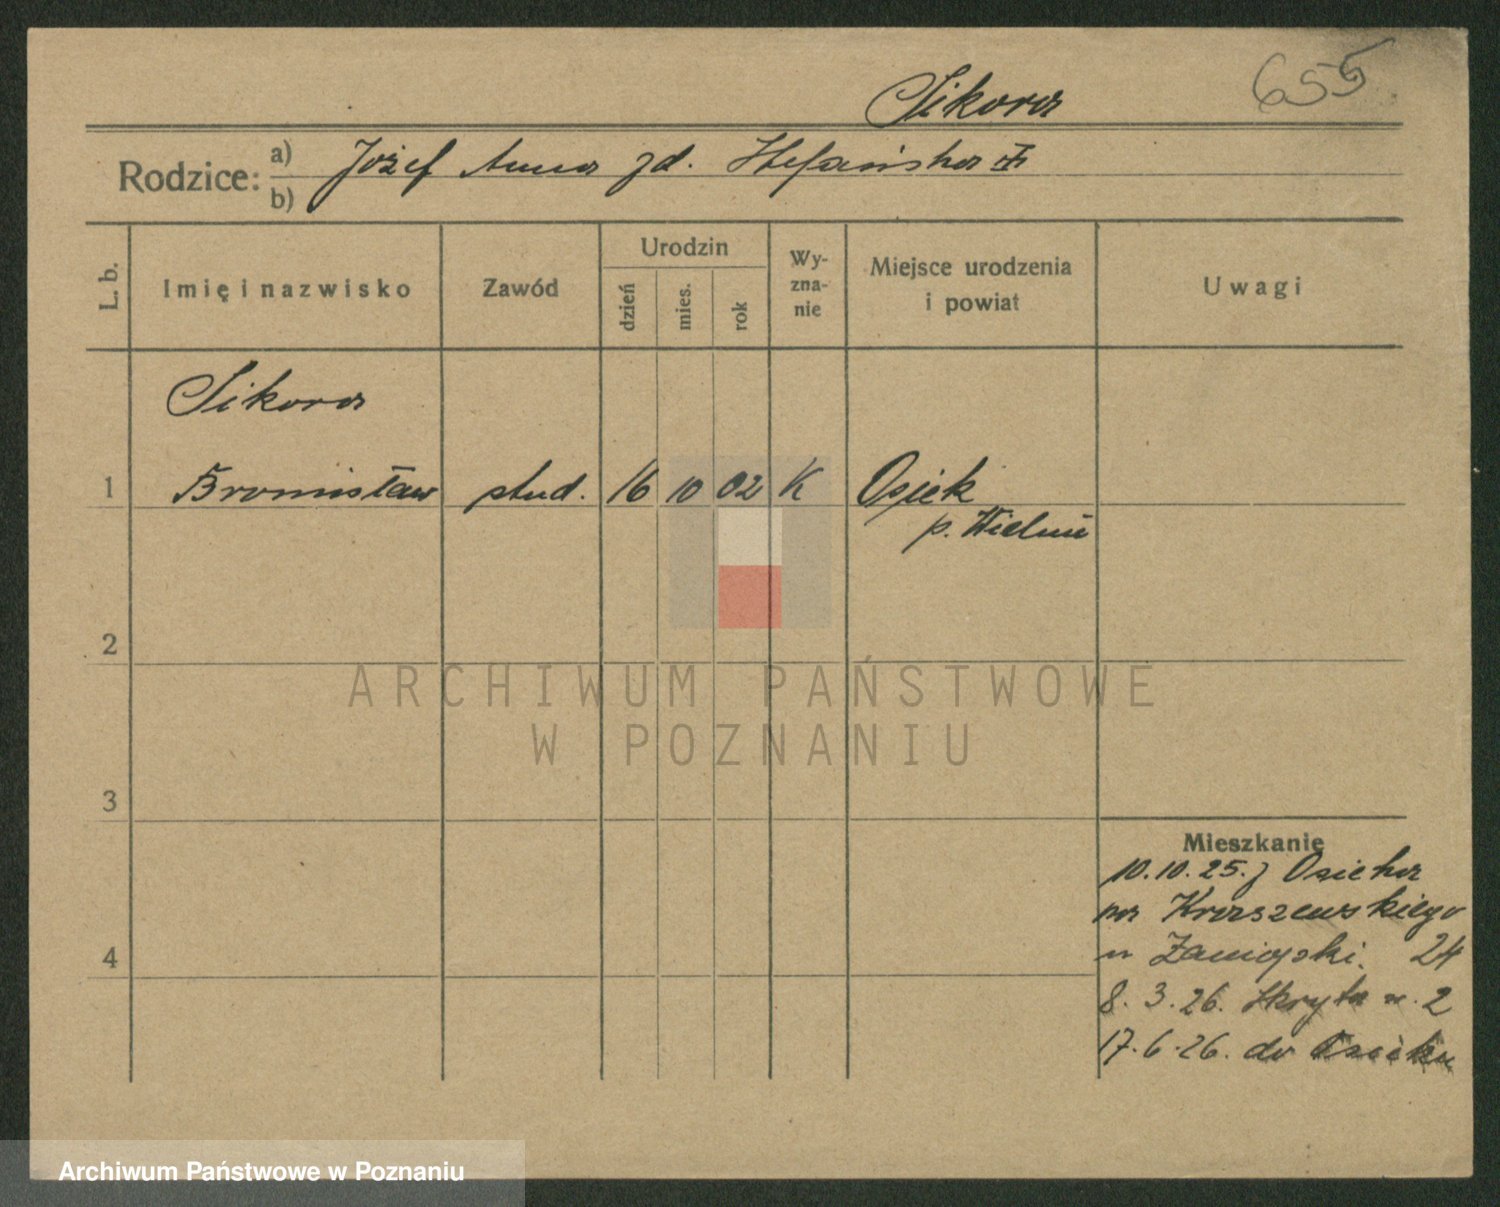 655
Sikora
Rodzice: a) Józef Anna zd. Stefańska
b)
L. b. Imię i nazwisko Zawód Urodzin dzień mies. rok Wy-zna-nie Miejsce urodzenia i powiat Uwagi
Sikora
1 Bronisław stud. 16 10 02 K Osiek
p. Wieluń
2
ARCHIWUM PAŃSTWOWE
W POZNANIU
3
Mieszkanie
10.10.25. z Osieka
na Kraszewskiego
4 u Zamojski. 24
8. 3. 26. Skryta n. 2
17. 6. 26. do Osieku
Archiwum Państwowe w Poznaniu